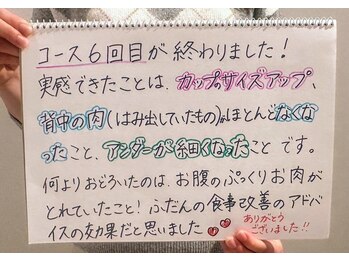 コース6回目が終わりました!
実感できたことは、カップのサイズアップ、
背中の肉(はみ出していたもの)がほとんどなくな
ったこと、アンダーが細くなったこと です。
何よりおどろいたのは、お腹のぷっくりお肉が
とれていたこと! ふだんの食事改善のアドバ
イスの効果だと思いました
ありがとう
ございました!!